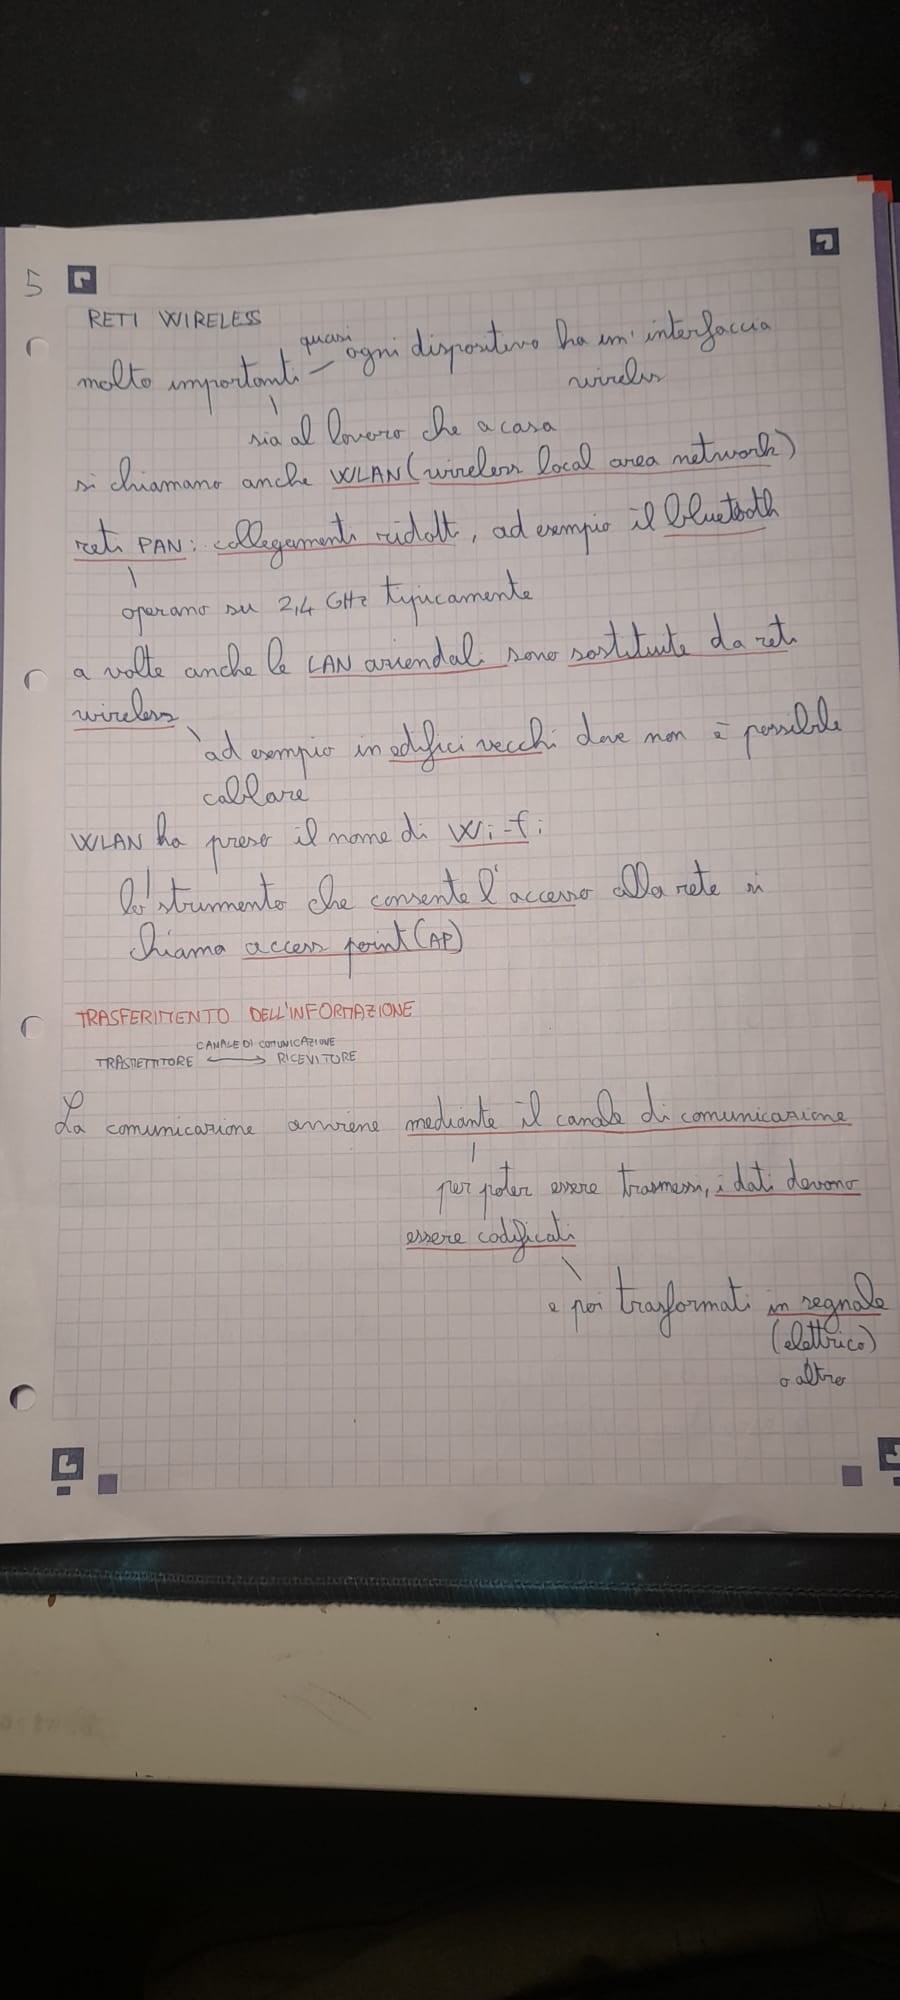 5
RETI WIRELESS
molto importanti – quasi ogni dispositivo ha un'interfaccia
wireless
sia al lavoro che a casa
si chiamano anche WLAN (wireless local area network)
reti PAN: collegamenti ridotti, ad esempio il bluetooth
operano su 2,4 GHz tipicamente
a volte anche le LAN aziendali sono sostituite da reti
wireless
ad esempio in edifici vecchi dove non è possibile
cablare
WLAN ha preso il nome di Wi-fi
lo strumento che consente l'accesso alla rete si
chiama access point (AP)
TRASFERIMENTO DELL'INFORMAZIONE
CANALE DI COMUNICAZIONE
TRASMETTITORE ⟷ RICEVITORE
La comunicazione avviene mediante il canale di comunicazione
per poter essere trasmessi, i dati devono
essere codificati
e poi trasformati in segnale
(elettrico)
o altro